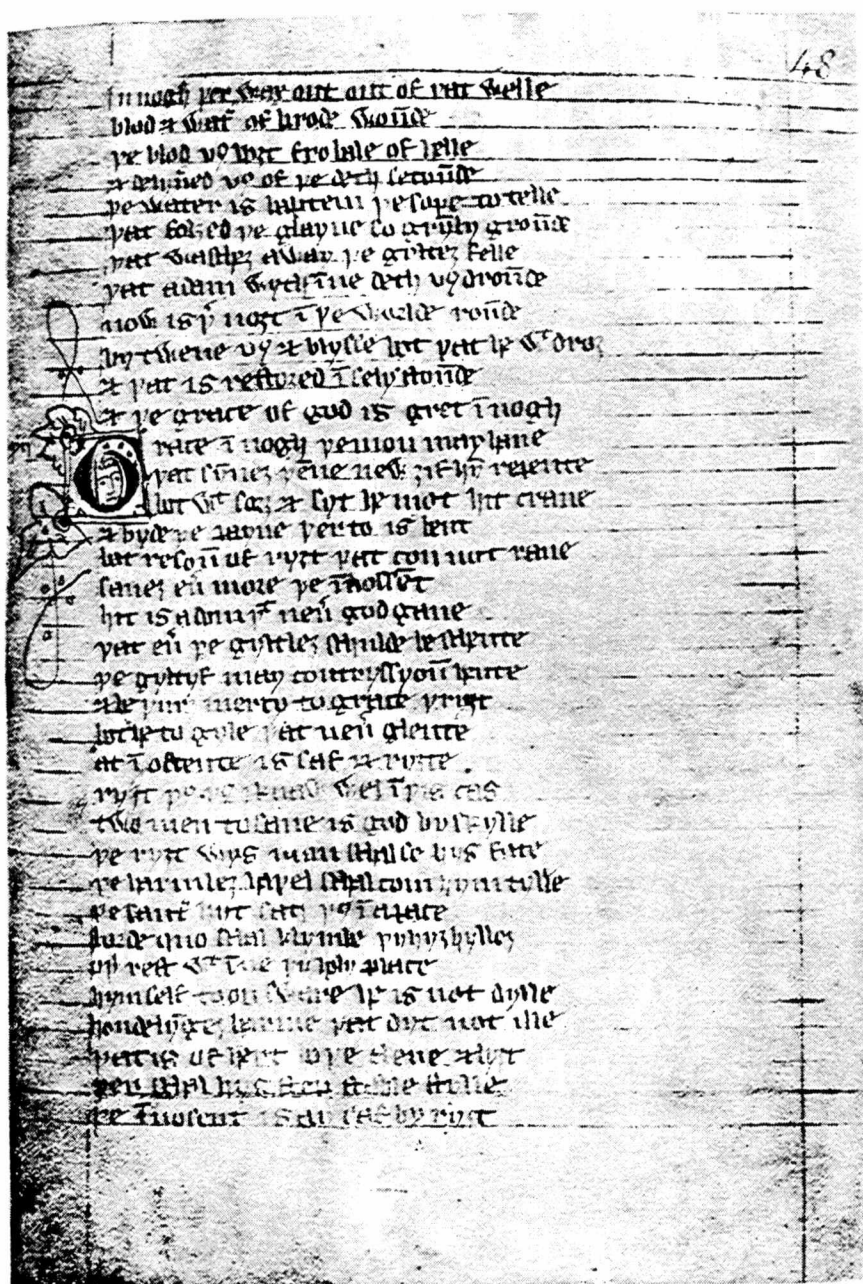 48
In nogh þer wax out out of þat welle
blod & wat̄ of brode wou̅de
þe blod vꝰ boȝt fro bale of helle
& delyu̅ed vꝰ of þe deth secou̅de
þe water is baptem þe soþe to telle
þat folȝed þe glayue so gry̅ly grou̅de
þat wascheȝ away þe gylteȝ felle
þat adam wyth i̅ne deth vꝰ drou̅de
now is þ̵ noȝt i̅ þe worlde rou̅de
by twene vꝰ & blysse bot þat he wᵗ droȝ
& þat is restored i̅ sely stou̅de
& þe grace of god is gret i̅nogh
Grace i̅nogh þe mon may haue
þat sy̅neȝ þe̅ne new ȝif hȳ repente
bot wᵗ sorȝ & syt he mot hit craue
& byde þe payne þer to is bent
bot resou̅ of ryȝt þat con not raue
saueȝ eu̅ more þe i̅nosse̅t
hit is adom þᵗ neu̅ god gaue
þat eu̅ þe gyltleȝ schulde be schente
þe gyltyf may contryssyou̅ hente
& be þurȝ mercy to grace þryȝt
bot he to gyle þat neu̅ glente
at i̅ oscente is saf & ryȝte
ryȝt þꝰ I knaw wel i̅ þis cas
two men to saue is god by skylle
þe ryȝt wys man schal se hys face
þe harmleȝ haþel schal com hym tylle
þe saut̄ hyt satȝ þꝰ i̅ a pace
lorde quo schal klymbe þy hyȝ hylleȝ
hymself to on sware he is not dylle
hondely̅geȝ harme þat dyt not ille
þat is of hert boþe clene & lyȝt
þer schal hys step stable stylle
þe i̅nosent is ay saf by ryȝt